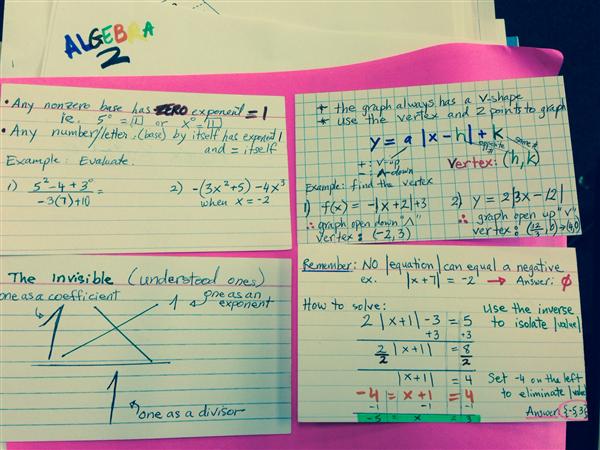 ALGEBRA
2
• Any nonzero base has ZERO exponent = 1
ie. 5⁰ = 1 or x⁰ = 1
• Any number/letter (base) by itself has exponent 1
and = itself
Example: Evaluate.
1) (5² - 4 + 3⁰) / (-3(7) + 10) =
2) -(3x² + 5) - 4x³
when x = -2
* the graph always has a V-shape
* use the vertex and 2 points to graph
y = a |x - h| + k
opposite
same
+ : V-up
- : Λ-down
Vertex: (h, k)
Example: find the vertex
1) f(x) = -|x + 2| + 3
∴ graph open down "Λ"
vertex: (-2, 3)
2) y = 2|3x - 12|
∴ graph open up "V"
vertex: (12/3, 0) → (4, 0)
The Invisible (understood ones)
one as a coefficient
1
1
one as an
exponent
1
one as a divisor
Remember: NO |equation| can equal a negative
ex. |x + 7| = -2 → Answer: ∅
How to solve:
2 |x+1| - 3 = 5
+3 +3
2/2 |x+1| = 8/2
|x+1| = 4
-4 = x+1 = 4
-1 -1 -1
-5 = x = 3
Use the inverse
to isolate |value|
Set -4 on the left
to eliminate |value|
Answer {-5, 3}